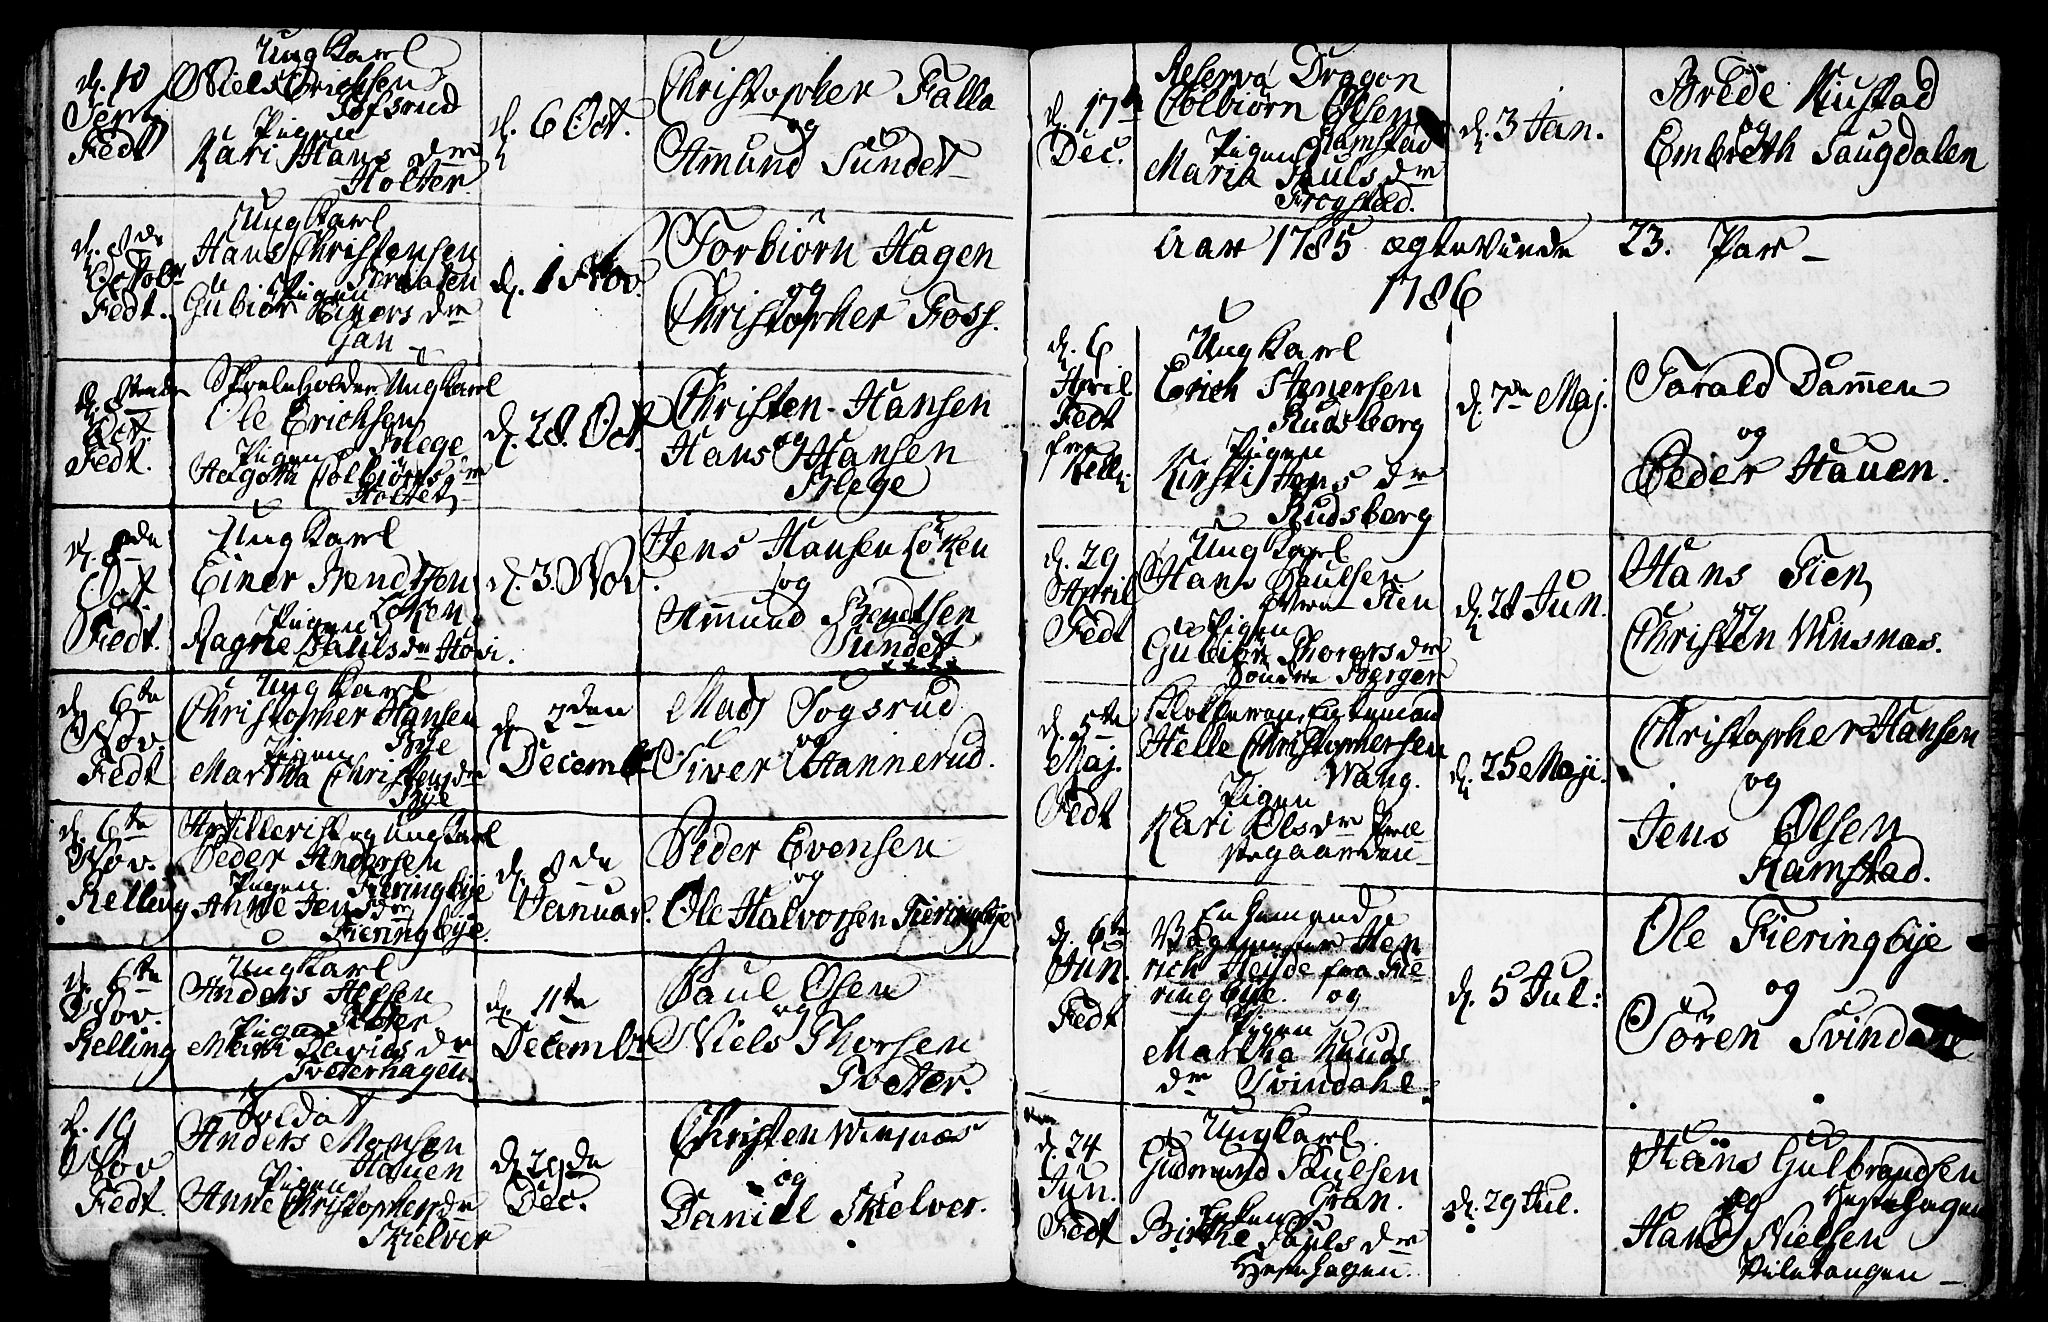 d. 10
Sept.
Fedt
Ung Karl
Niels Erichsen
Tofsrud
Pigen
Kari Hans dr
Holter.
d. 6 Oct.
Christopher Falla
og
Amund Sundet
d. 8de
Octobr
Fedt.
Ung Karl
Hans Christensen
Pigen
Gubiør Einers dr
Gan
d. 1 Nov.
Torbiørn Hagen
og
Christopher Foss.
Oct.
Fedt.
Ung Karl
Ole Erichsen
Hege
Pigen
Colbiørns dr
Holter
d. 28. Oct.
Christen Hansen
og
Hans Hansen
Hege
d. 8de
Oct.
Fedt.
Ung Karl
Einer Bendtsen
Løken
Pigen
Ragne Pauls dr Hovi.
d. 3. Nov.
Jens Hansen Løken
og
Amund Bendtsen
Sundet
d. 6te
Nov.
Fedt
Ung Karl
Christopher Hansen
Bye
Pigen
Martha Christens dr
Bye
d. 2den
Decemb
Mads Togsrud
og
Siver Hannerud.
d. 6te
Nov.
Kelling
Artillerist og Ung Karl
Peder Andersen
Fieringbye
Pigen
Anne Jens dr
Fieringbye.
d. 8de
Januar.
Peder Evensen
og
Ole Halvorsen Fieringbye
d. 6te
Nov.
Kelling
Ung Karl
Anders
Pigen
Davids dr
Tveterhagen.
d. 11te
Decembr
Paul Olsen
og
Niels Thorsen
Tveter.
d. 19
Nov
Fedt.
Soldat
Anders Monsen
Hauen
Pigen
Anne Christopher dr
Skielver
d. 29de
Dec.
Christen Winsnæs
og
Daniel Skielver.
d. 17de
Dec.
Reserva Dragon
Colbiørn Olsen
Ramstad
Pigen
Maria Pauls dr
Frogstad.
d. 3 Jan.
Brede Riustad
og
Embreth Haugdalen
Aar 1785 ægteviede 23. Par
1786
d. 6
April
Fedt
fra
Kell:
Ung Karl
Erich Stenersen
Rudsberg
Pigen
Kirsti Hans dr
Rudsberg
d. 7de Maj.
Tarald Dammen
og
Peder Hauen.
d. 29
April
Fedt
Ung Karl
Hans Paulsen
Fien
Pigen
Gubiør Thorers dr
Søndre Berger
d. 28 Jun.
Hans Fien
og
Christen Winsnæs.
d. 5te
Maj.
Fedt
Klokkeren, Enkemand
Helle Christophersen
Wang.
Pigen
Kari Ols dr Præ
stegaarden
d. 25 Maji.
Christopher Hansen
og
Jens Olsen
Ramstad.
d. 6te
Jun.
Fedt
Enkemand
Vagtmester Hen
rich Heide fra Fie
ringbye. og
Pigen
Martha Knuds
dr Svindahl.
d. 5 Jul:
Ole Fieringbye
og
Søren Svindal
d. 24
Jun.
Fedt
Ung Karl.
Gudmund Paulsen
Gran.
Enken
Birthe Pauls dr
Hestehagen.
d. 29 Jul.
Hans Gulbrandsen
og Hestehagen
Hans Nielsen
Pusletangen